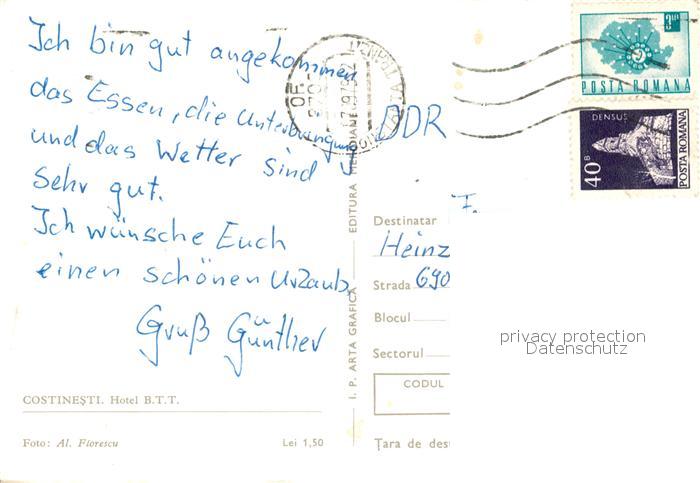 Ich bin gut angekommen
das Essen, die Unterbringung
und das Wetter sind
sehr gut.
Ich wünsche Euch
einen schönen Urlaub.
Gruß Günther
COSTINEȘTI. Hotel B.T.T.
Foto: Al. Florescu
Lei 1,50
I. P. ARTA GRAFICĂ
EDITURA MERIDIANE
POSTA ROMANA
DENSUȘ
40 B
POSTA ROMANA
DDR
F.
Destinatar
Heinz
Strada 690
Blocul
Sectorul
CODUL
Țara de des
privacy protection
Datenschutz